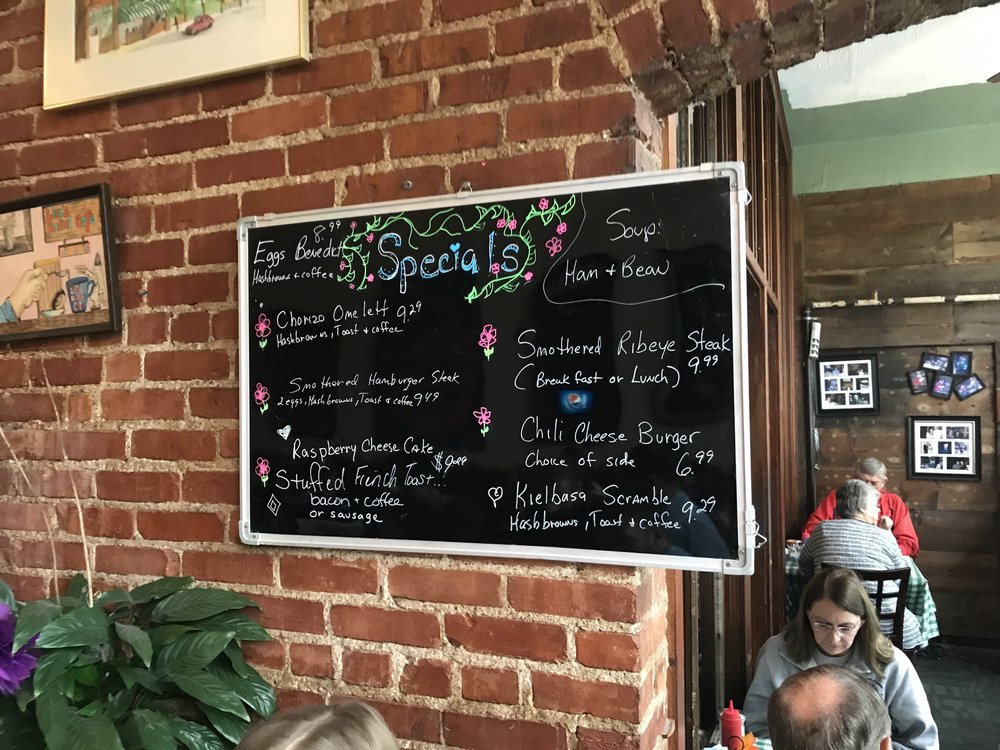 Specials
8.99
Eggs Benedict
Hashbrowns + coffee
Chorizo Omelett 9.29
Hashbrowns, Toast + coffee
Smothered Hamburger Steak
2 eggs, Hashbrowns, Toast + coffee 9.49
Raspberry Cheese Cake
Stuffed French Toast...
bacon + coffee
or sausage
Soup:
Ham + Bean
Smothered Ribeye Steak
(Breakfast or Lunch) 9.99
Chili Cheese Burger
Choice of side 6.99
Kielbasa Scramble
Hashbrowns, Toast + coffee 9.29